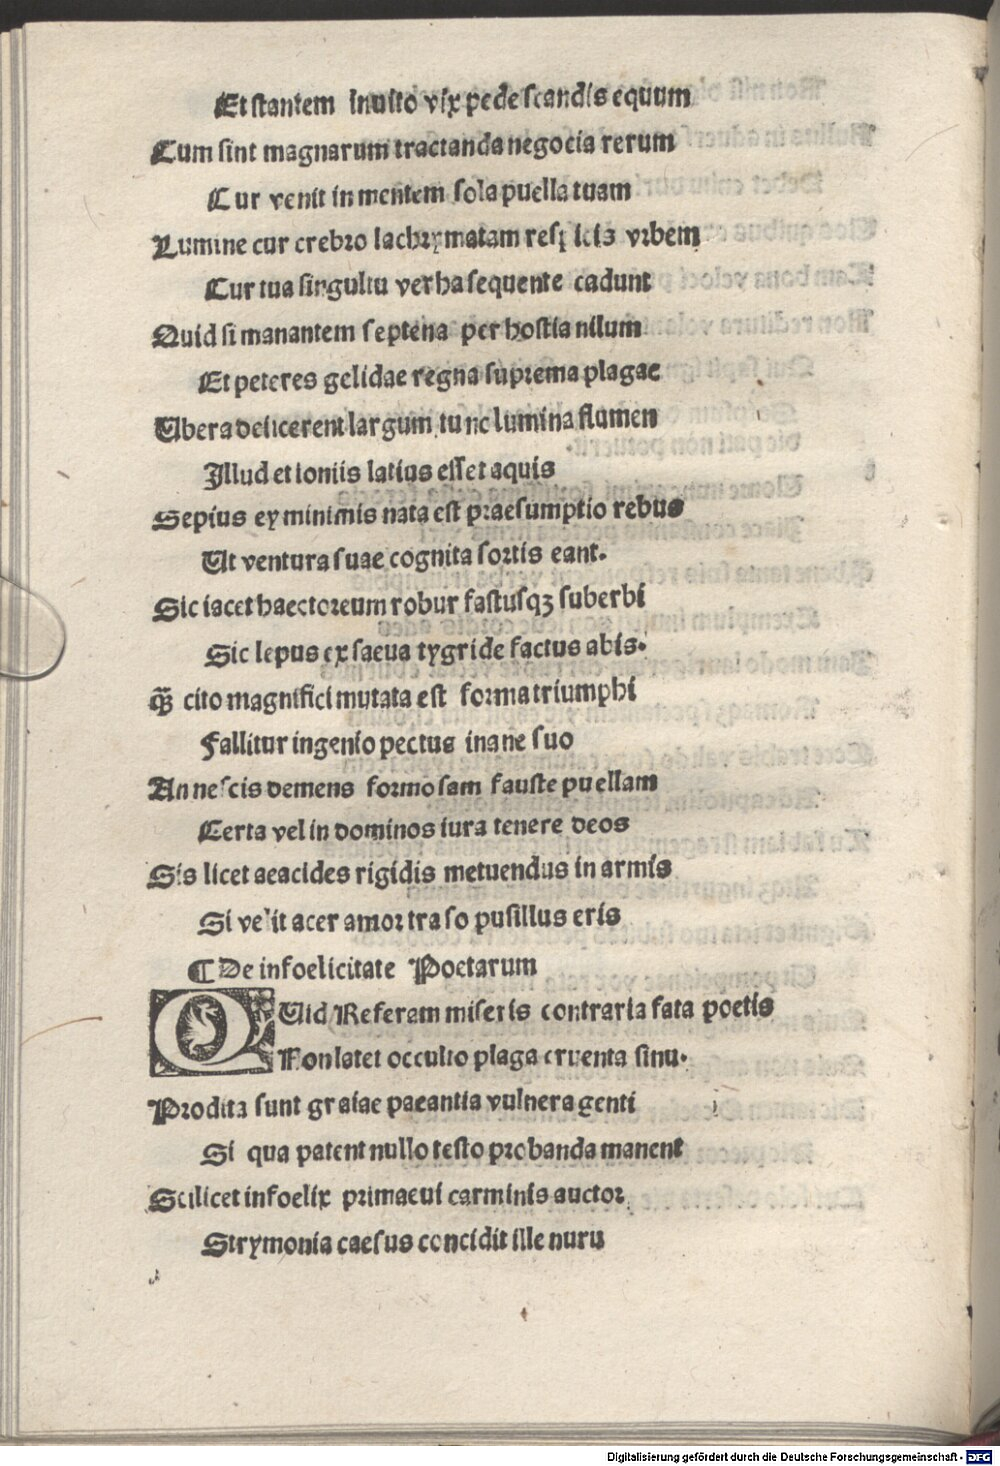 Et stantem inuito vix pede scandis equum
Cum sint magnarum tractanda negocia rerum
Cur venit in mentem sola puella tuam
Lumine cur crebro lachrymatam respicis vrbem
Cur tua singultu verba sequente cadunt
Quid si manantem septena per hostia nilum
Et peteres gelidae regna suprema plagae
Ubera deiicerent largum tunc lumina flumen
Illud et ioniis latius esset aquis
Sepius ex minimis nata est praesumptio rebus
Ut ventura suae cognita sortis eant.
Sic iacet haectoreum robur fastusqꝫ suberbi
Sic lepus ex saeua tygride factus abis.
q̄ꝫ cito magnifici mutata est forma triumphi
Fallitur ingenio pectus inane suo
An nescis demens formosam fauste puellam
Certa vel in dominos iura tenere deos
Sis licet aeacides rigidis metuendus in armis
Si velit acer amor traso pusillus eris
¶ De infoelicitate Poetarum
QUid Referam miseris contraria fata poetis
Non latet occulto plaga cruenta sinu.
Prodita sunt graiae paeantia vulnera genti
Si qua patent nullo testo probanda manent
Scilicet infoelix primaeui carminis auctor
Strymonia caesus concidit ille nuru
Digitalisierung gefördert durch die Deutsche Forschungsgemeinschaft - DFG